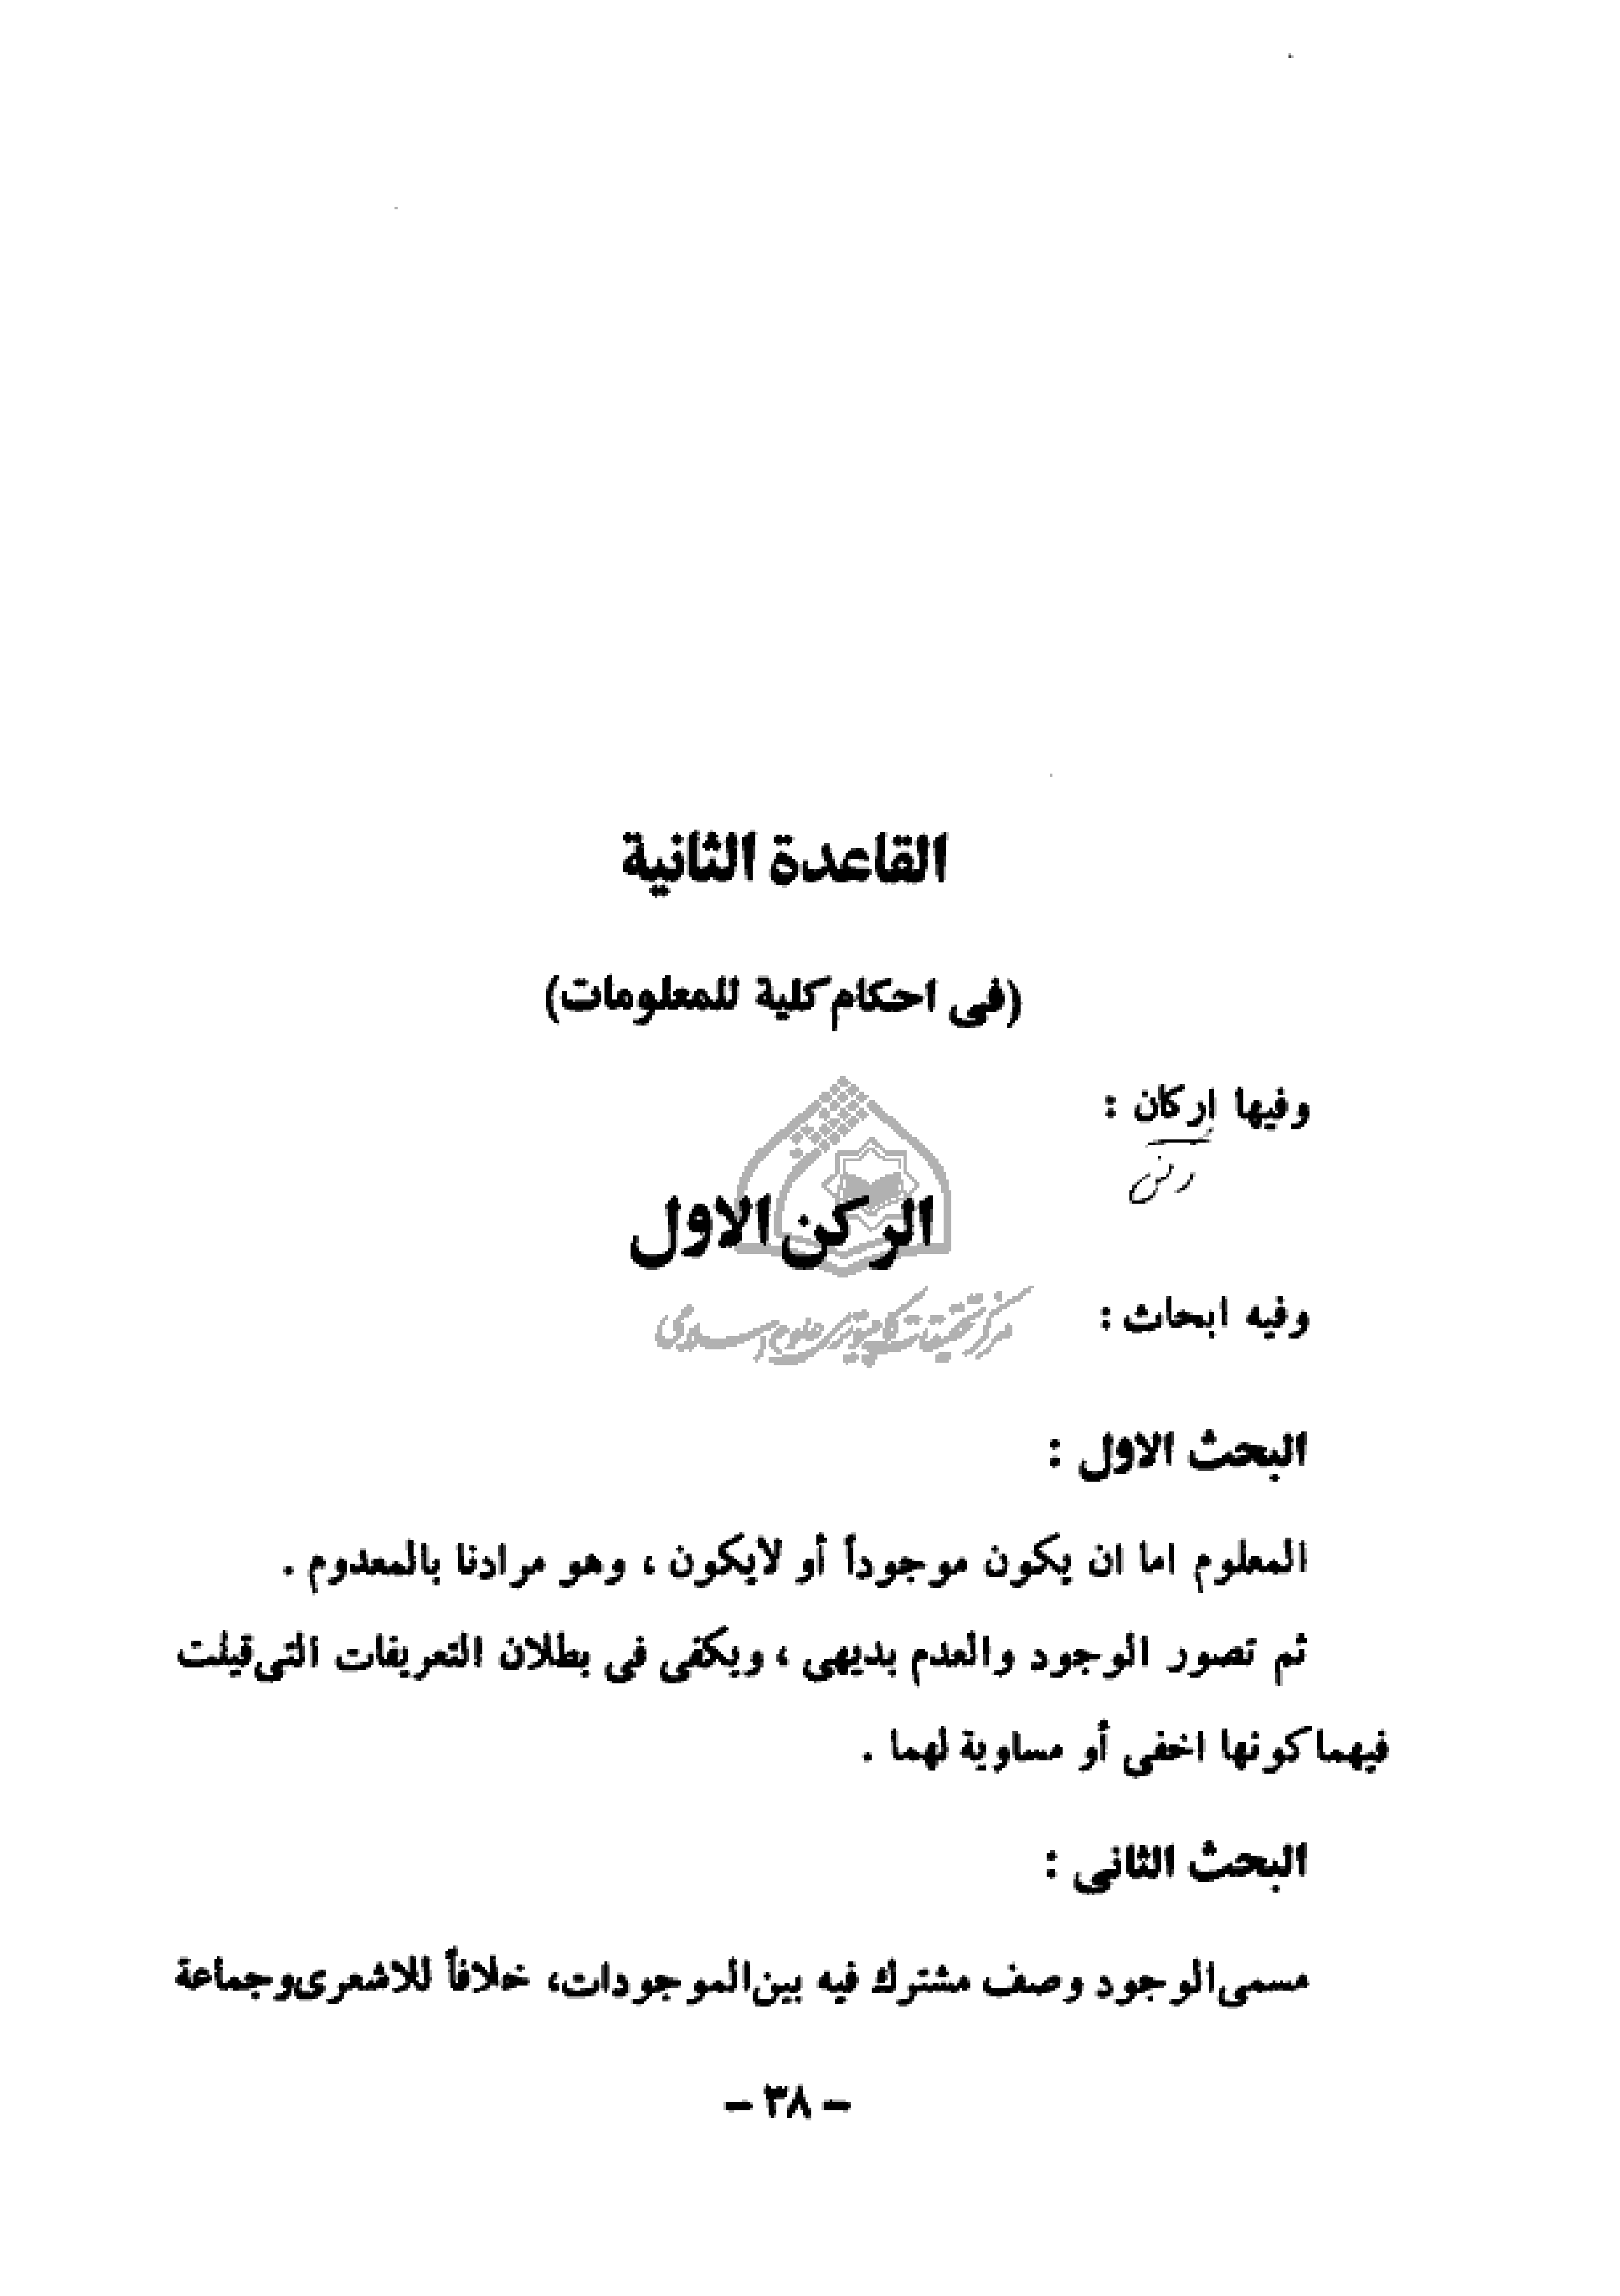 القاعدة الثانية
(فى احكام كلية للمعلومات)
وفيها اركان :
الركن الاول
مركز تحقيقات كامپيوتري علوم اسلامي
وفيه ابحاث :
البحث الاول :
المعلوم اما ان يكون موجوداً أو لايكون ، وهو مرادنا بالمعدوم .
ثم تصور الوجود والعدم بديهى ، ويكفى فى بطلان التعريفات التى قيلت
فيهما كونها اخفى أو مساوية لهما .
البحث الثانى :
مسمى الوجود وصف مشترك فيه بين الموجودات، خلافاً للاشعرى وجماعة
– ٣٨ –